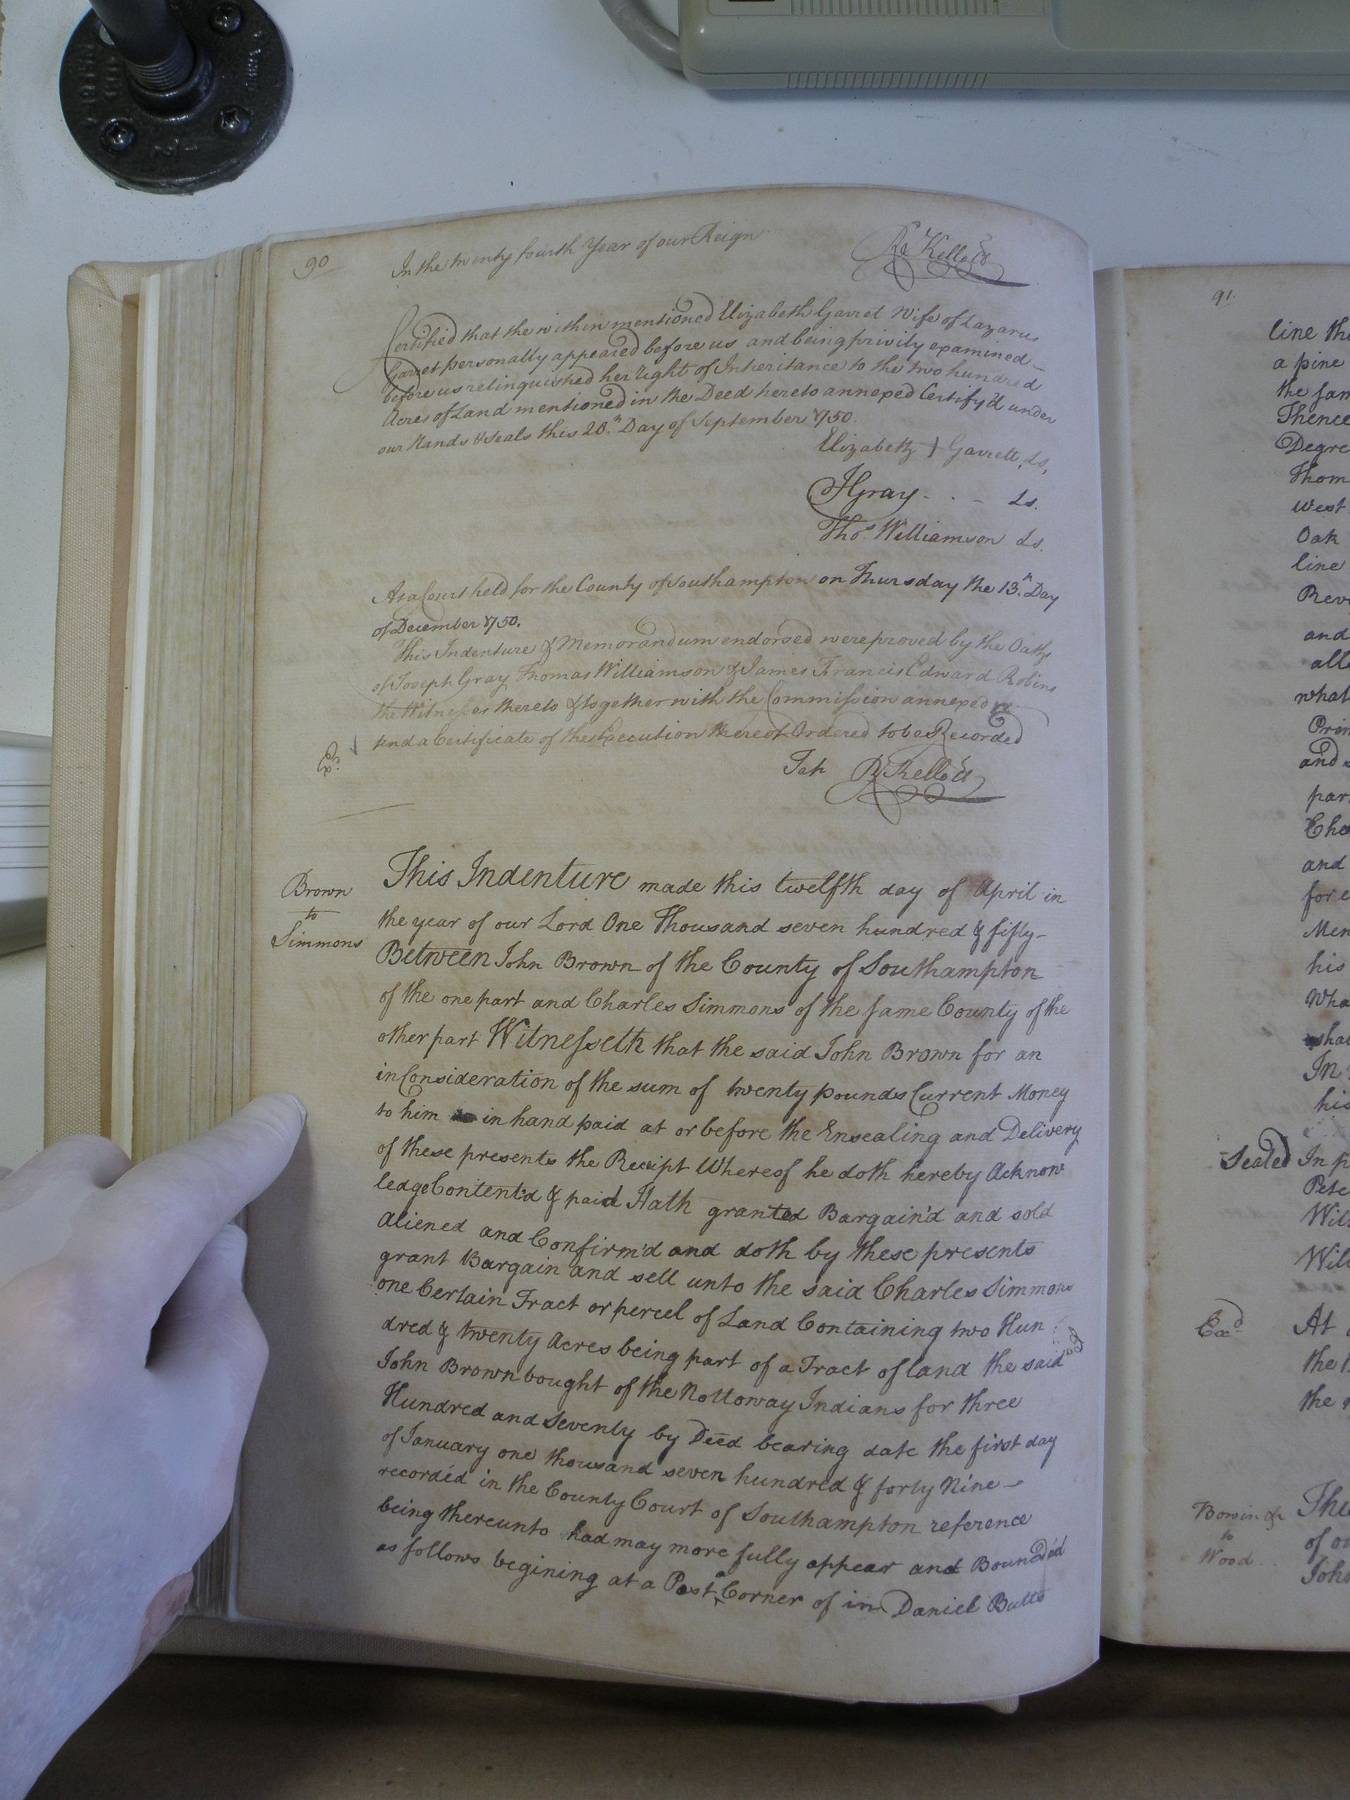 90
In the twenty fourth Year of our Reign
Rd Kello Cl
Certified that the within mentioned Elizabeth Garret Wife of Lazarus
Garret personally appeared before us and being privily examined
before us relinquished her Right of Inheritance to the two hundred
Acres of Land mentioned in the Deed hereto annexed Certify'd under
our Hands & Seals this 28th Day of September 1750.
Elizabeth + Garrett, Ls,
JGray - . - Ls.
Thos Williamson Ls.
At a Court held for the County of Southampton on Thursday the 13th Day
of December 1750.
This Indenture & Memorandum endorsed were proved by the Oaths
of Joseph Gray Thomas Williamson & James Francis Edward Robins
the Witnesses thereto & together with the Commission annexed
and a Certificate of the Execution thereof Ordered to be Recorded
Exd
Test R Kello Cl
Brown
to
Simmons
This Indenture made this twelfth day of April in
the year of our Lord One Thousand seven hundred & fifty-
Between John Brown of the County of Southampton
of the one part and Charles Simmons of the same County of the
other part Witnesseth that the said John Brown for an
in Consideration of the sum of twenty pounds Current Money
to him in hand paid at or before the Ensealing and Delivery
of these presents the Receipt Whereof he doth hereby Acknow
ledge Content'd & paid Hath granted Bargain'd and sold
Aliened and Confirm'd and doth by these presents
grant Bargain and sell unto the said Charles Simmons
one Certain Tract or percel of Land Containing two Hun
dred & twenty Acres being part of a Tract of land the said
John Brown bought of the Nottoway Indians for three
Hundred and Seventy by Deed bearing date the first day
of January one thousand seven hundred & forty Nine-
recorded in the County Court of Southampton reference
being thereunto had may more fully appear and Bounded
as follows begining at a Post a Corner of in Daniel Butts
91
line
a pine
the
Thence
Degre
Thom
West
Oak
line
Reve
and
all
what
and
par
Cha
and
for e
his
Wha
In
his
Sealed In p
Pete
Will
Exd
At
the
the
to
Wood
The
of ou
John